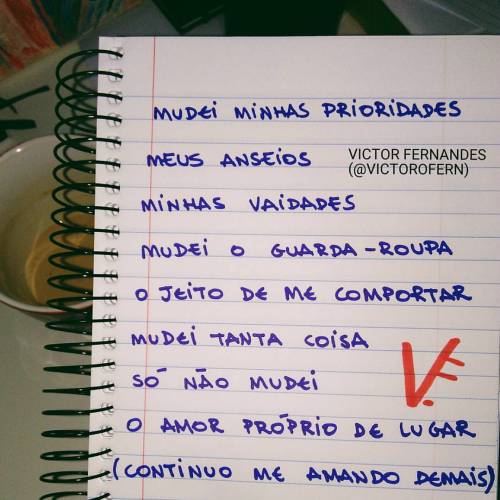 MUDEI MINHAS PRIORIDADES
MEUS ANSEIOS
VICTOR FERNANDES
(@VICTOROFERN)
MINHAS VAIDADES
MUDEI O GUARDA-ROUPA
O JEITO DE ME COMPORTAR
MUDEI TANTA COISA
SÓ NÃO MUDEI
VF.
O AMOR PRÓPRIO DE LUGAR
(CONTINUO ME AMANDO DEMAIS)